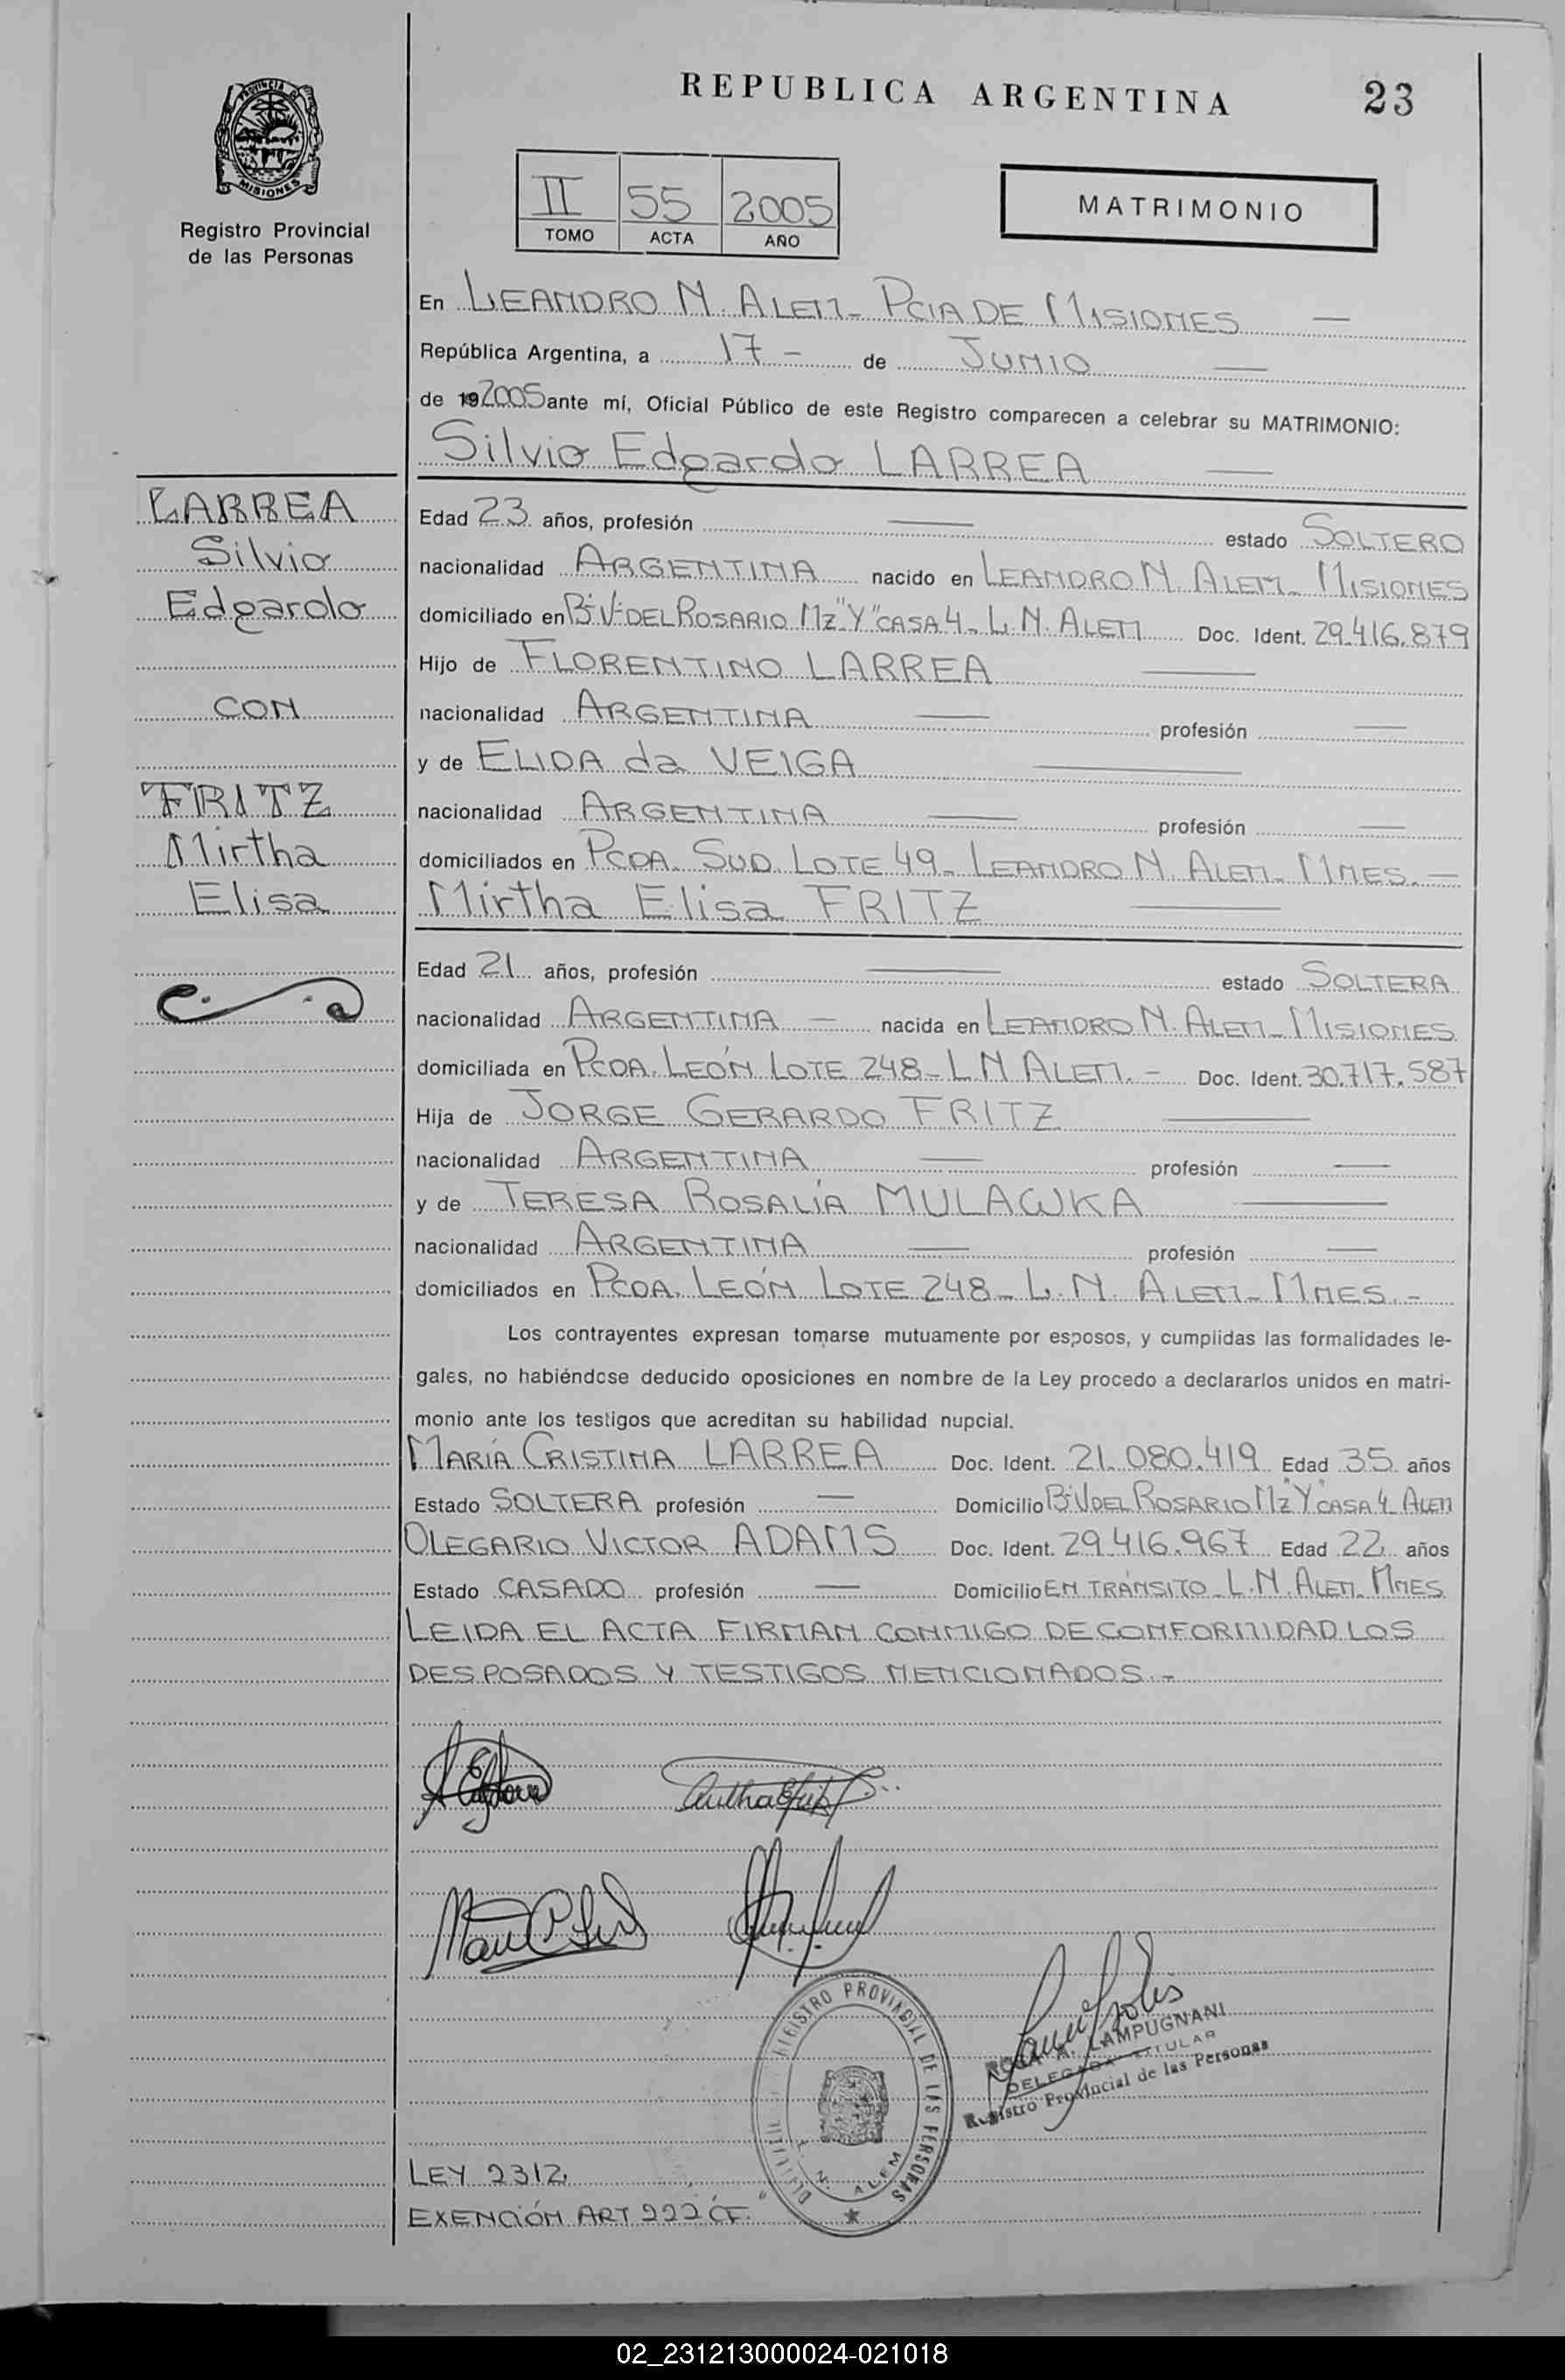 REPUBLICA ARGENTINA
23
PROVINCIA D
MISIONES
Registro Provincial
de las Personas
II 55 2005
TOMO ACTA AÑO
MATRIMONIO
En LEANDRO N. ALEM - PCIA DE MISIONES —
República Argentina, a 17 - de JUNIO —
de 192005 ante mí, Oficial Público de este Registro comparecen a celebrar su MATRIMONIO:
Silvio Edgardo LARREA —
LARREA
Silvio
Edgardo
CON
FRITZ
Mirtha
Elisa
Edad 23 años, profesión — estado SOLTERO
nacionalidad ARGENTINA nacido en LEANDRO N. ALEM - MISIONES
domiciliado en Bº V. DEL ROSARIO Mz "Y" CASA 4 - L. N. ALEM Doc. Ident. 29.416.879
Hijo de FLORENTINO LARREA —
nacionalidad ARGENTINA — profesión —
y de ELIDA da VEIGA —
nacionalidad ARGENTINA — profesión —
domiciliados en PCDA. SUD LOTE 49 - LEANDRO N. ALEM - MNES. —
Mirtha Elisa FRITZ —
Edad 21 años, profesión — estado SOLTERA
nacionalidad ARGENTINA — nacida en LEANDRO N. ALEM - MISIONES
domiciliada en PCDA. LEÓN LOTE 248 - L N ALEM. - Doc. Ident. 30.717.587
Hija de JORGE GERARDO FRITZ —
nacionalidad ARGENTINA — profesión —
y de TERESA ROSALÍA MULAWKA —
nacionalidad ARGENTINA — profesión —
domiciliados en PCDA. LEÓN LOTE 248 - L. N. ALEM - MNES. -
Los contrayentes expresan tomarse mutuamente por esposos, y cumplidas las formalidades le-
gales, no habiéndose deducido oposiciones en nombre de la Ley procedo a declararlos unidos en matri-
monio ante los testigos que acreditan su habilidad nupcial.
MARÍA CRISTINA LARREA Doc. Ident. 21.080.419 Edad 35 años
Estado SOLTERA profesión — Domicilio Bº V DEL ROSARIO Mz "Y" CASA 4 - ALEM
OLEGARIO VICTOR ADAMS Doc. Ident. 29.416.967 Edad 22 años
Estado CASADO profesión — Domicilio EN TRÁNSITO - L. N. ALEM - MNES
LEIDA EL ACTA FIRMAN CONMIGO DE CONFORMIDAD LOS
DESPOSADOS Y TESTIGOS MENCIONADOS. -
REGISTRO PROVINCIAL DE LAS PERSONAS
L. N. ALEM
ROSA A. LAMPUGNANI
DELEGADA TITULAR
Registro Provincial de las Personas
LEY 2312.
EXENCIÓN ART 222 CF.
02_231213000024-021018